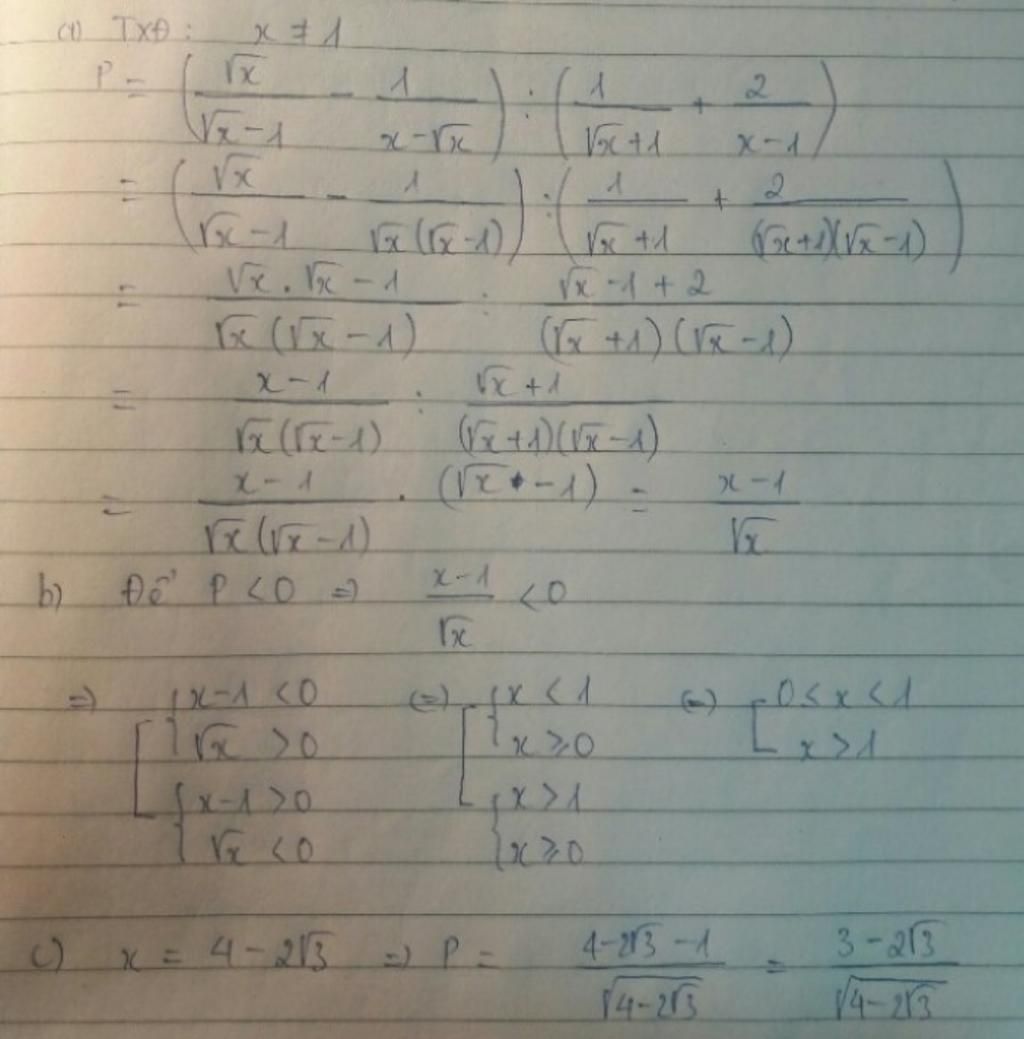 a) TXĐ: x ≠ 1
P = (√x/(√x-1) - 1/(x-√x)) : (1/(√x+1) + 2/(x-1))
= (√x/(√x-1) - 1/(√x(√x-1))) : (1/(√x+1) + 2/((√x+1)(√x-1)))
= (√x.√x-1)/(√x(√x-1)) : (√x-1+2)/((√x+1)(√x-1))
= (x-1)/(√x(√x-1)) : (√x+1)/((√x+1)(√x-1))
= (x-1)/(√x(√x-1)) . (√x-1) = (x-1)/√x
b) Để P < 0 => (x-1)/√x < 0
=> [ { x-1 < 0 <=> [ { x < 1 <=> [ 0 ≤ x < 1
√x > 0 x ≥ 0 x > 1
{ x-1 > 0 { x > 1
√x < 0 x ≥ 0
c) x = 4-2√3 => P = (4-2√3-1)/√(4-2√3) = (3-2√3)/√(4-2√3)